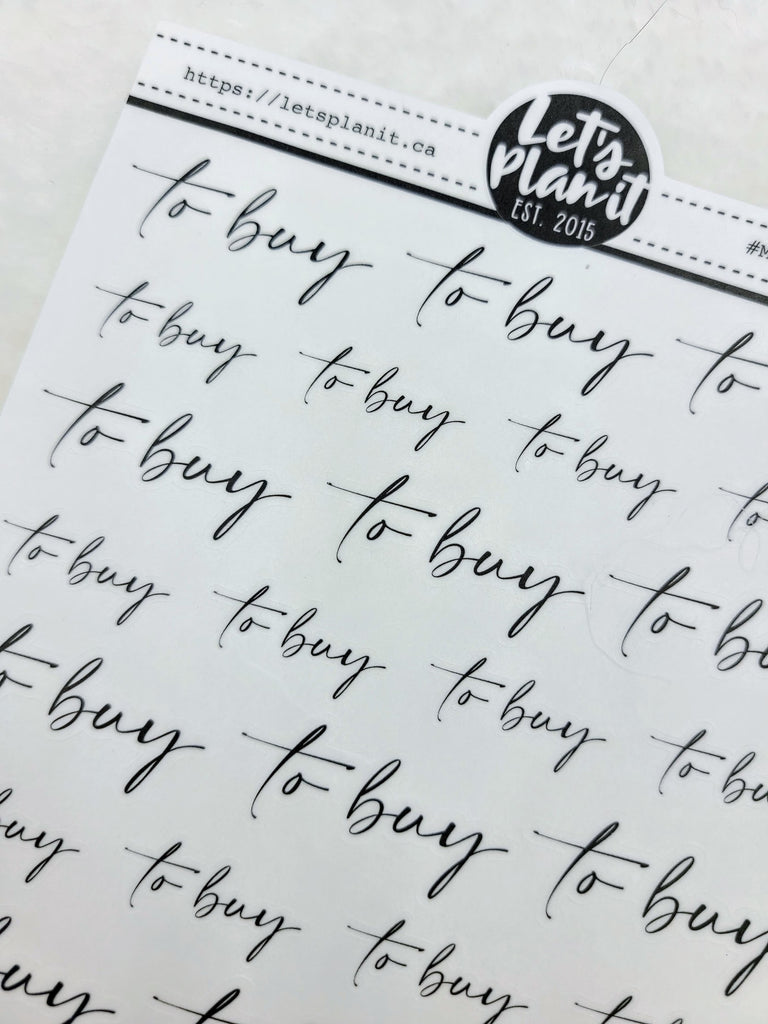 https://letsplanit.ca
Let's
planit
EST. 2015
#M
to buy to buy to
to buy to buy to buy to
to buy to buy to bu
to buy to buy to buy to bu
to buy to buy to buy
buy to buy to buy to
buy to